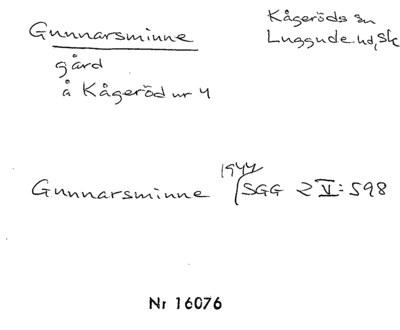 Gunnarsminne
Kågeröds sn
Luggude hd, Sk
gård
å Kågeröd nr 4
1944
Gunnarsminne SGG 2 V: 598
Nr 16076